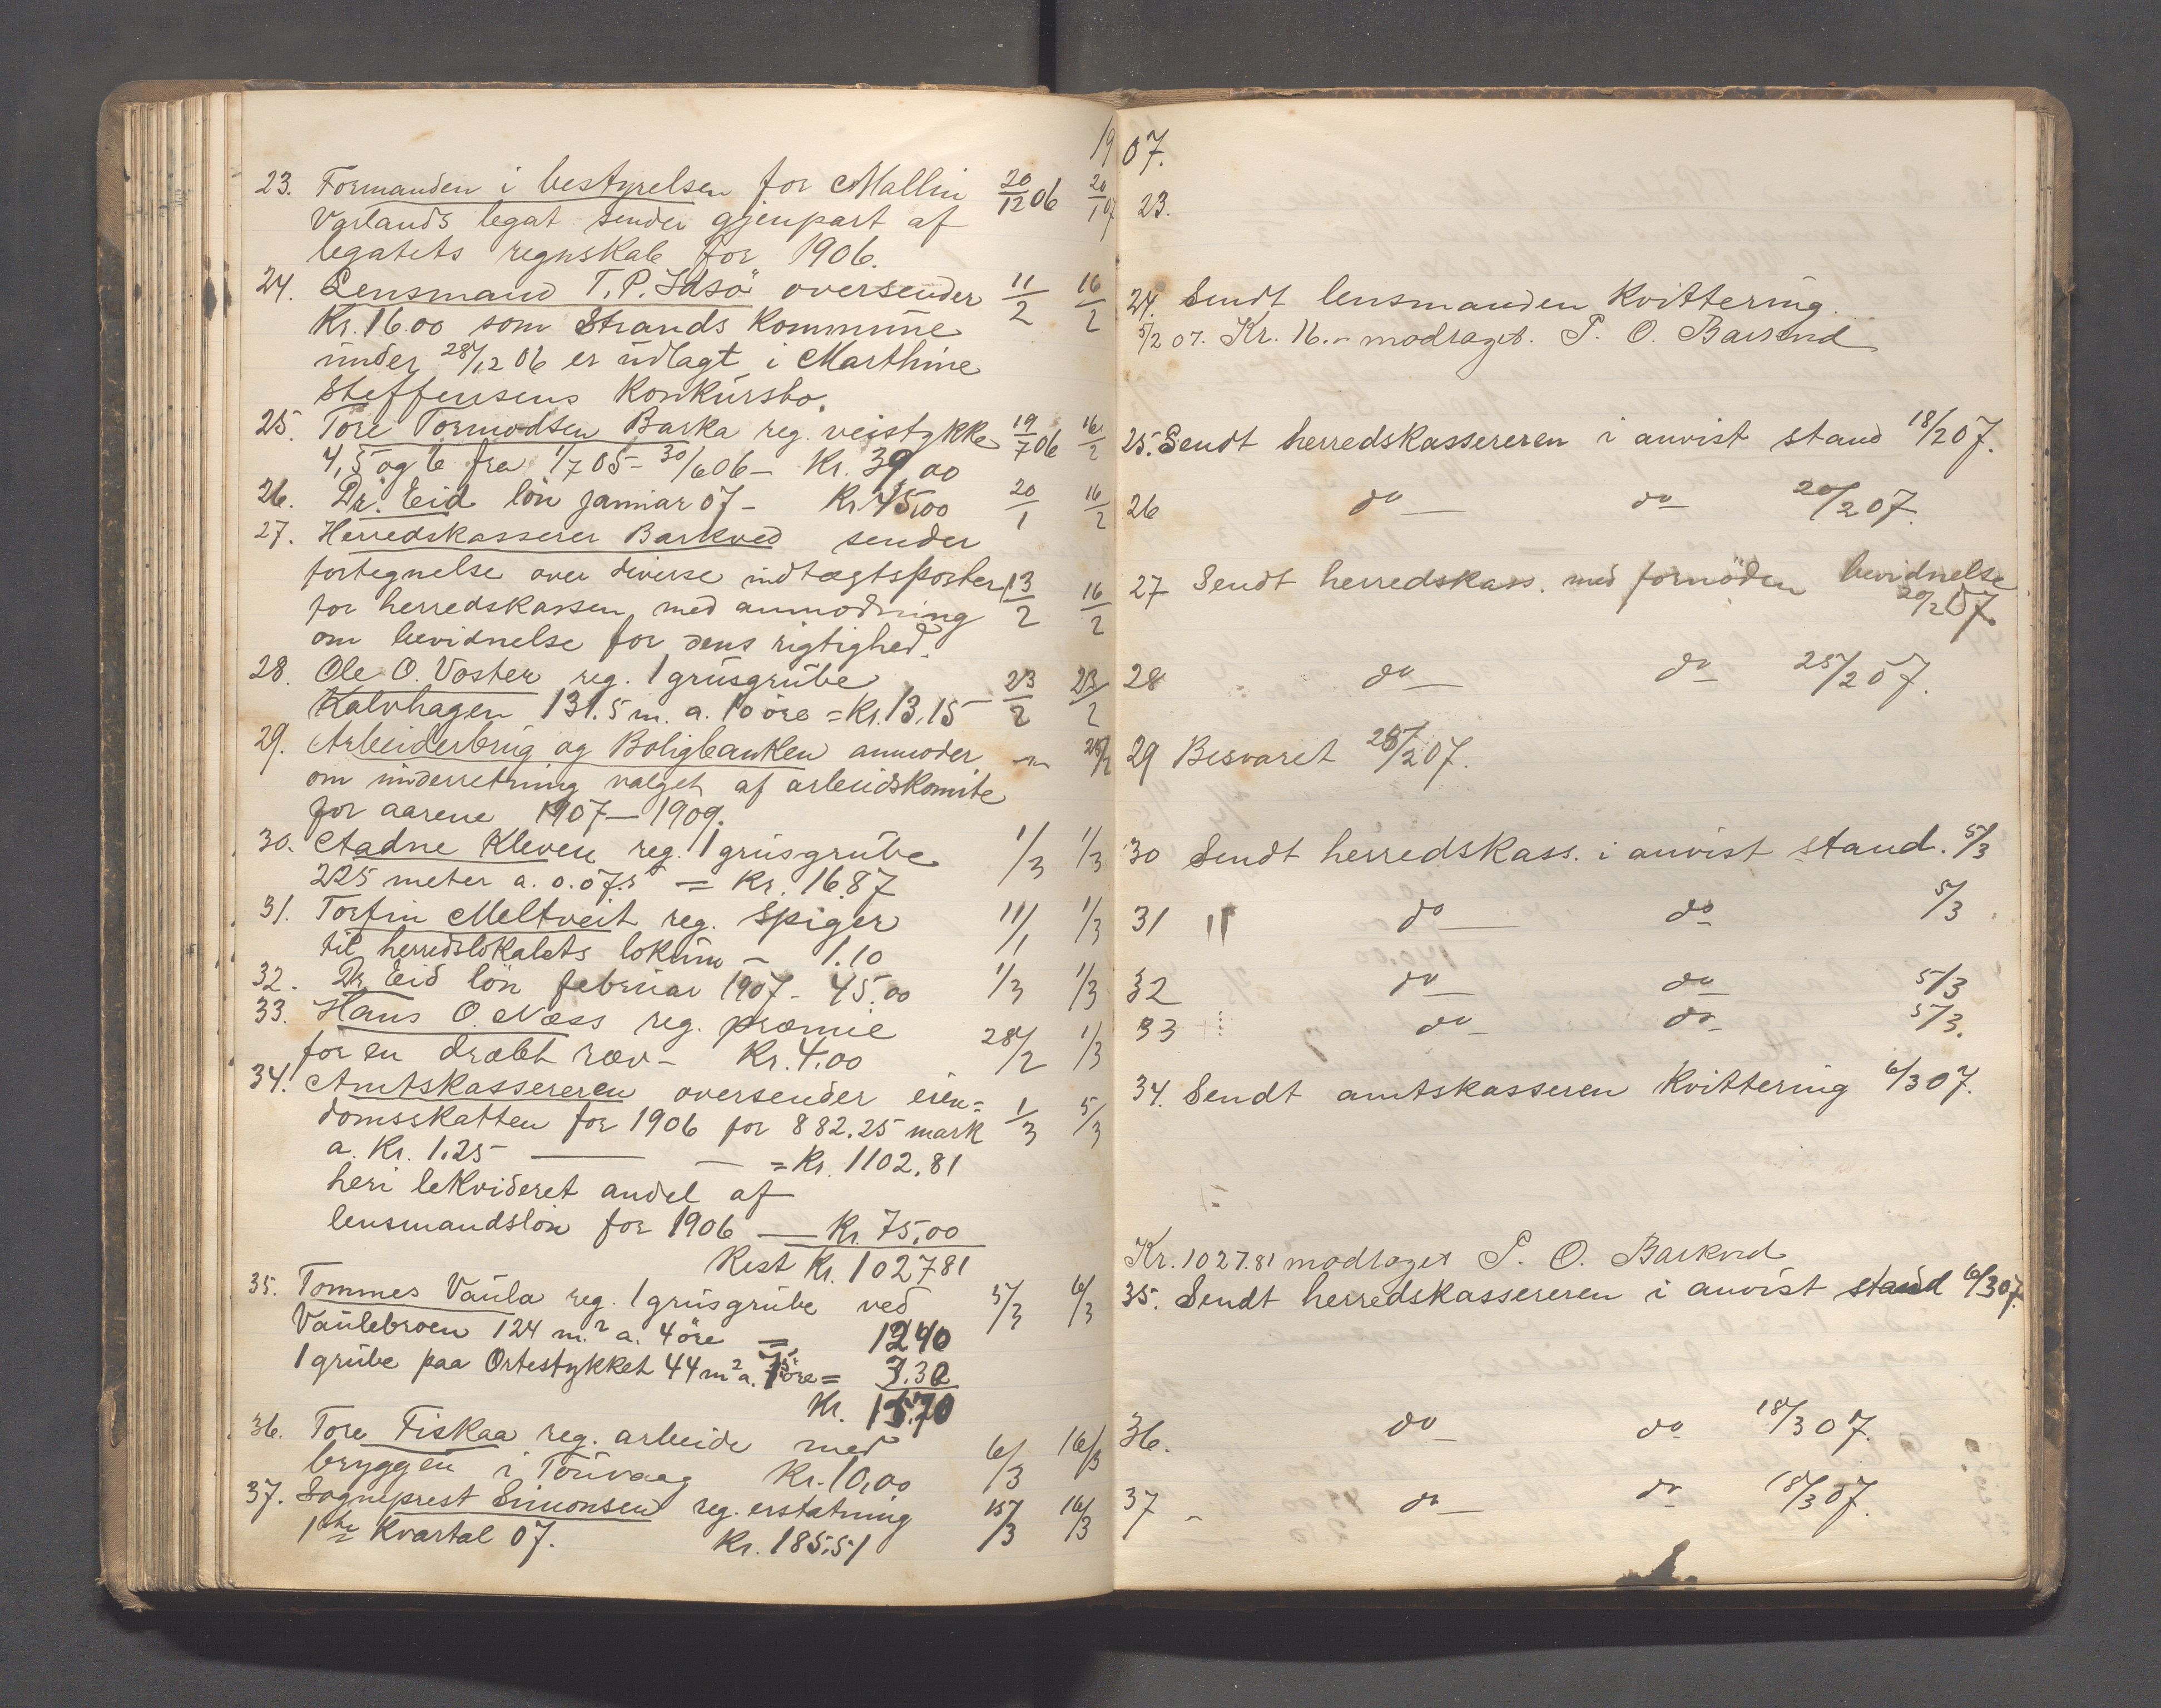 1907.
23. Formanden i bestyrelsen for Mallin 20/12 06 20/1 07
Varlands legat sender gjenpart af
legatets regnskab for 1906.
24. Lensmand T. P. Idsö oversender 11/2 16/2
Kr. 16.00 som Strands Kommune
under 28/12 06 er udlagt i Marthine
Steffensens Konkursbo.
25. Tore Tormodsen Barka reg. veistykke 19/7 06 16/2
4, 5 og 6 fra 1/7 05 - 30/6 06 - Kr. 39,00
26. Dr. Eid lön januar 07 - Kr. 45,00 20/1 16/2
27. Herredskasserer Barkved sender
fortegnelse over diverse indtægtsposter 13/2 16/2
for herredskassen, med anmodning
om bevidnelse for dens rigtighed.
28. Ole O. Voster reg. 1 grusgrube 23/2 23/2
Kalvhagen 131.5 m. a. 10 öre = Kr. 13.15
29. Arbeiderbrug og Boligbanken anmoder 25/2
om underretning valget af arbeidskomite
for aarene 1907 - 1909.
30. Aadne Kleven reg. 1 grusgrube 1/3 1/3
225 meter a. 0.07.5 = Kr. 16.87
31. Torfin Meltveit reg. Spiger 11/1 1/3
til herredslokalets lokum - 1.10
32. Dr Eid lön februar 1907 - 45.00 1/3 1/3
33. Hans O. Næss reg. præmie
for en dræbt ræv - Kr. 4.00 28/2 1/3
34. Amtskassereren oversender eien=
domsskatten for 1906 for 882.25 mark 1/3 5/3
a. Kr. 1.25 — — = Kr. 1102.81
heri lekvideret andel af
lensmandslön for 1906 — Kr. 75.00
Rest Kr. 1027 81
35. Tommes Vaula reg. 1 grusgrube ved 5/3 6/3
Vaulebroen 124 m.² a. 4 öre =
1240
1 grube paa Ortestykket 44 m² a. 7.5 öre = 3.30
Kr. 15.70
36. Tore Fiskaa reg. arbeide med 6/3 16/3
bryggen i Touvaag Kr. 10,00
37. Sogneprest Simonsen reg. erstatning 15/3 16/3
1ste Kvartal 07. Kr. 185.51
23.
24. Sendt lensmanden Kvittering.
5/2 07. Kr. 16.- modtaget. P. O. Barkved
25. Sendt herredskassereren i anvist stand 18/2 07.
26 do — do — 20/2 07.
27 Sendt herredskass. med fornöden bevidnelse
20/2 07.
28 do — do 25/2 07.
29 Besvaret 28/2 07.
30 Sendt herredskass. i anvist stand. 5/3
31 " do — do — 5/3
32 do — do — 5/3
33 do — do — 5/3.
34. Sendt amtskasseren Kvittering 6/3 07.
Kr. 1027.81 modtaget P. O. Barkved
35. Sendt herredskassereren i anvist stand 6/3 07.
36. do — do — 18/3 07.
37 - do — do — 18/3 07.